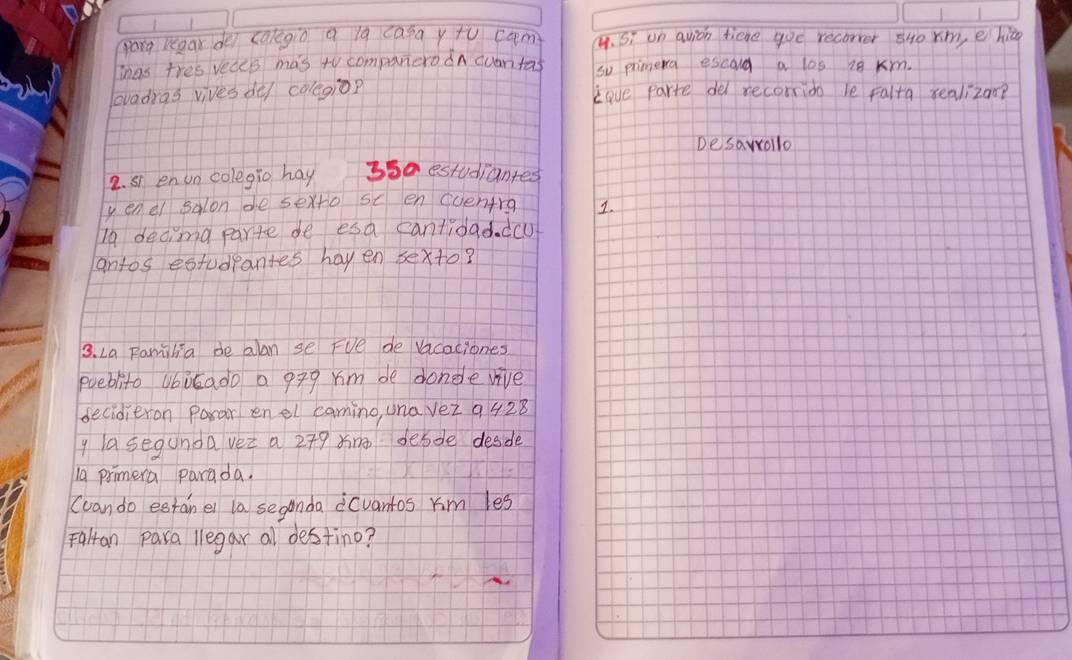 para llegar del colegio a la casa y tu cam-
inas tres veces más tu compañero ¿n cuantas
cuadras vives del colegio?
2. si en un colegio hay 350 estudiantes
y en el salon de sexto se en cuentra
la decima parte de esa cantidad. ¿cu-
antos estudiantes hay en sexto?
3. La Familia de alan se Fue de vacaciones
pueblito ubicado a 979 Km de donde vive
decidieron Parar en el camino, una vez a 428
y la segunda vez a 279 Km desde desde
la primera parada.
Cuando están el la segunda ¿Cuantos Km les
Faltan para llegar al destino?
4. Si un avión tiene que recorrer 540 Km, e hizo
su primera escala a los 18 Km.
¿Que Parte del recorrido le Falta realizar?
Desarrollo
1.